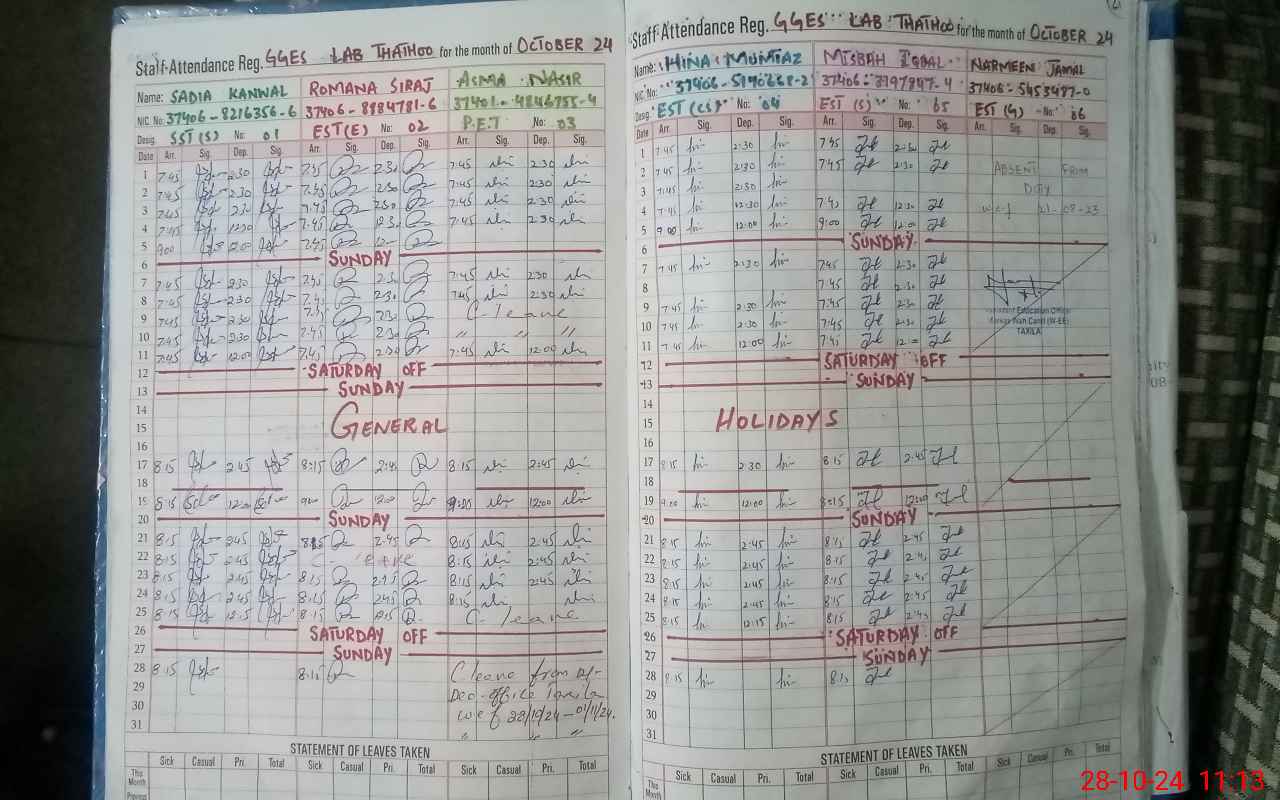 Staff Attendance Reg. GGES LAB THATHOO for the month of OCTOBER 24
Name: SADIA KANWAL ROMANA SIRAJ ASMA NASIR
N.I.C. No: 37406-8216356-6 37406-8884781-6 37401-4846755-4
Desig. SST(S) No: 01 EST(E) No: 02 P.E.T No: 03
Date Arr. Sig. Dep. Sig. Arr. Sig. Dep. Sig. Arr. Sig. Dep. Sig.
1 7:45 2:30 7:45 2:30 7:45 2:30
2 7:45 2:30 7:45 2:30 7:45 2:30
3 7:45 2:30 7:45 2:30 7:45 2:30
4 7:45 12:30 7:45 12:30 7:45 2:30
5 9:00 12:00 7:45 12
6 SUNDAY
7 7:45 2:30 7:45 2:30 7:45 2:30
8 7:45 2:30 7:45 2:30 7:45 2:30
9 7:45 2:30 7:45 2:30 C-leave
10 7:45 2:30 7:45 2:30 " " "
11 7:45 12:00 7:45 2:30 7:45 12:00
12 SATURDAY OFF
13 SUNDAY
14
15 GENERAL
16
17 8:15 2:45 8:15 2:45 8:15 2:45
18
19 8:15 12:00 9:00 12:00 9:00 12:00
20 SUNDAY
21 8:15 2:45 8:15 2:45 8:15 2:45
22 8:15 2:45 C- leave 8:15 2:45
23 8:15 2:45 8:15 2:45 8:15 2:45
24 8:15 2:45 8:15 2:45 8:15
25 8:15 12:15 8:15 12:15 C- leave
26 SATURDAY OFF
27 SUNDAY
28 8:15 8:15 C.leave from
29 Deo-office Taxila
30 w.e.f 28/10/24 - 01/11/24.
31 " " "
STATEMENT OF LEAVES TAKEN
Sick Casual Pri. Total Sick Casual Pri. Total Sick Casual Pri. Total
This Month
Previous
Staff Attendance Reg. GGES LAB THATHOO for the month of OCTOBER 24
Name: HINA MUMTAZ MISBAH IQBAL NARMEEN JAMAL
N.I.C. No: 37406-5190268-2 37406-3197897-4 37406-5453497-0
Desig. No: 04 EST (S) No: 05 EST (G) No: 06
Date Arr. Sig. Dep. Sig. Arr. Sig. Dep. Sig. Arr. Sig. Dep. Sig.
1 7:45 2:30 7:45 2:30
2 7:45 2:30 7:45 2:30 ABSENT FROM
3 7:45 2:30 DUTY
4 7:45 12:30 7:45 12:30 w.e.f 21-08-23
5 9:00 12:00 9:00 12:00
6 SUNDAY
7 7:45 2:30 7:45 2:30
8 7:45 2:30
9 7:45 2:30 7:45 2:30
10 7:45 2:30 7:45 2:30
11 7:45 12:00 7:45 12:00
Education Officer
Wah Cantt (W-EE)
TAXILA
12 SATURDAY OFF
13 SUNDAY
14
15 HOLIDAYS
16
17 8:15 2:30 8:15 2:45
18
19 9:00 12:00 8:15 12:00
20 SUNDAY
21 8:15 2:45 8:15 2:45
22 8:15 2:45 8:15 2:45
23 8:15 2:45 8:15 2:45
24 8:15 2:45 8:15 2:45
25 8:15 12:15 8:15 2:45
26 SATURDAY OFF
27 SUNDAY
28 8:15 8:15
29
30
31
STATEMENT OF LEAVES TAKEN
Sick Casual Pri. Total Sick Casual Pri. Total Sick Casual Pri. Total
This Month
28-10-24 11:13